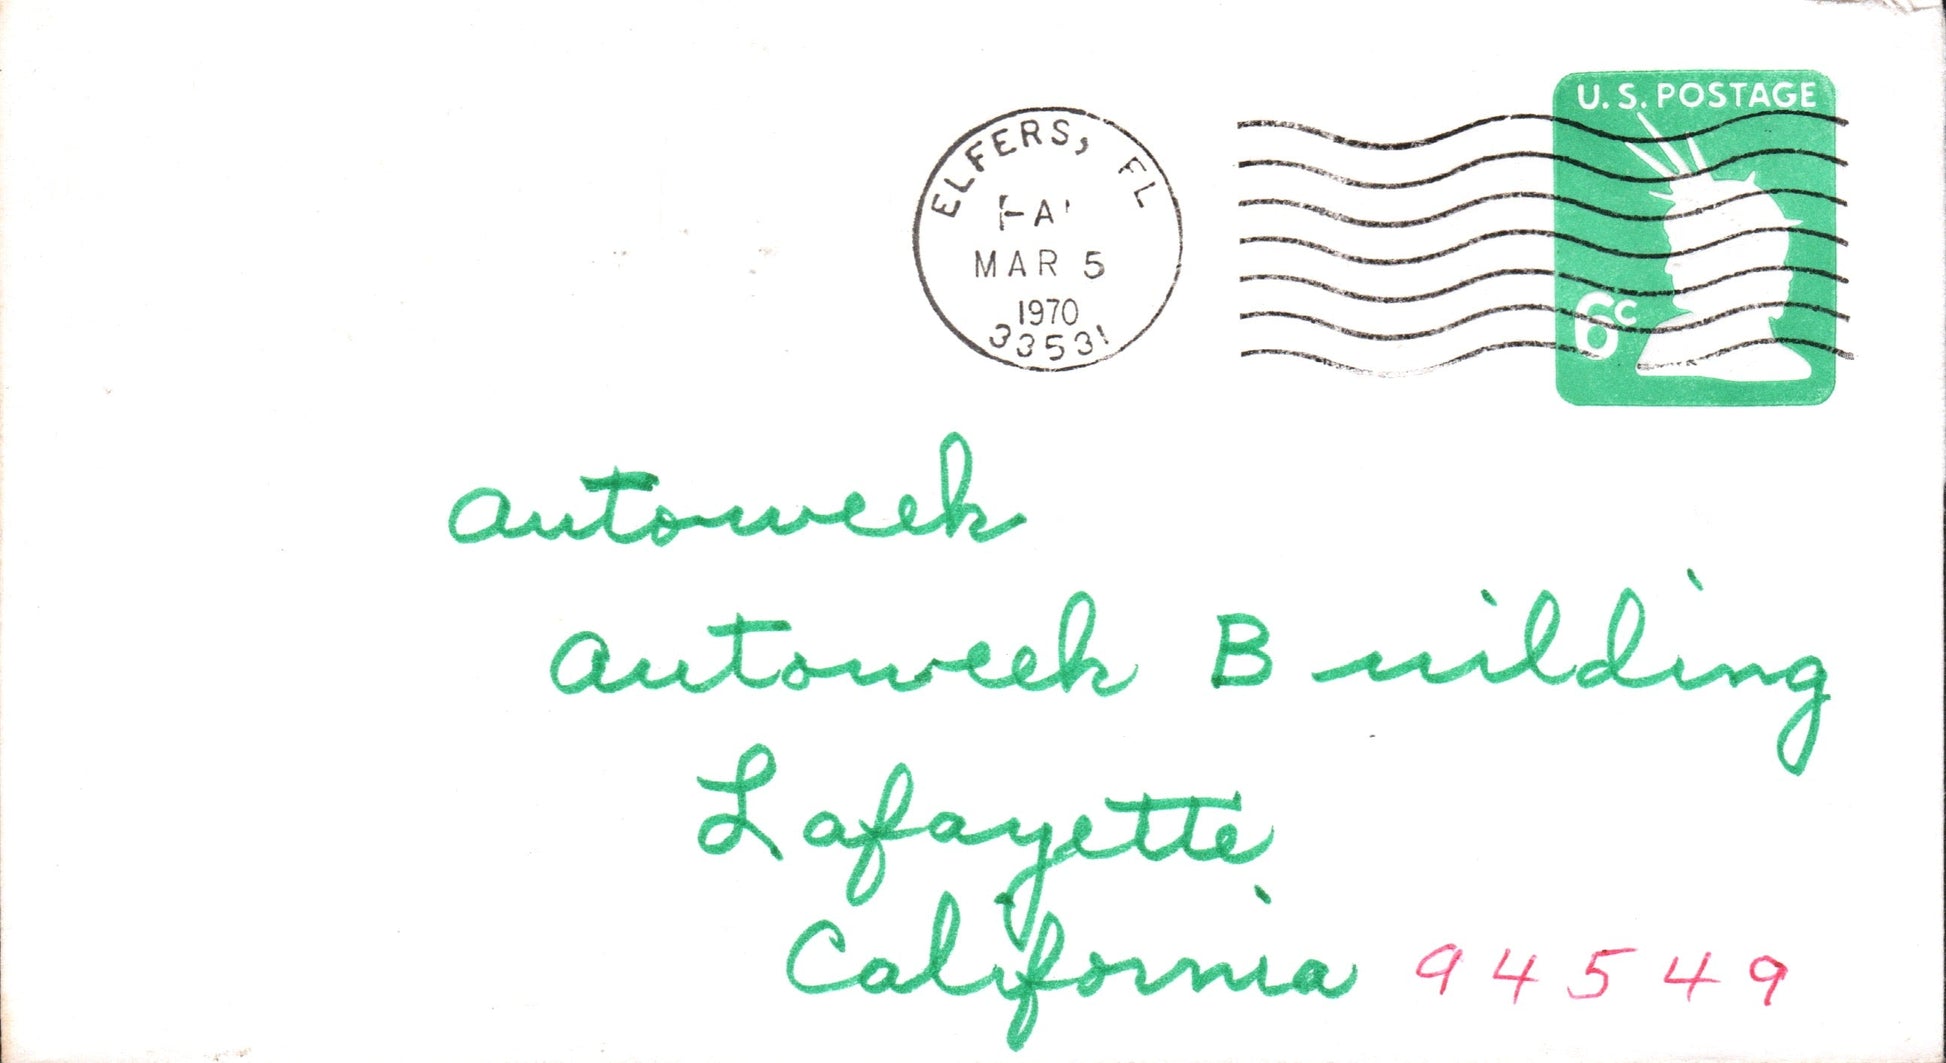 U. S. POSTAGE
6c
ELFERS, FL
MAR 5
1970
33531
autoweek
autoweek Building
Lafayette
California 94549